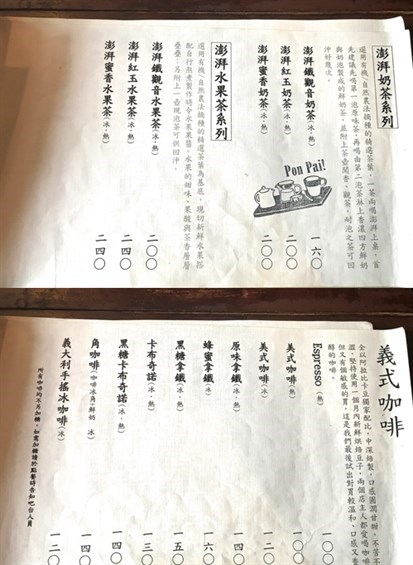 澎湃奶茶系列
選用有機/自然農法摘種的精選茶葉，一茶兩喝澎湃上桌，首
先建議先喝第一泡原味茶，再喝由第二泡茶淋上香濃四方鮮奶
與奶泡製成的鮮奶茶，並附上茶壺聞香、觀茶，耐泡之茶可回
沖好幾次。
澎湃鐵觀音奶茶(冰．熱) 一六〇
澎湃紅玉奶茶(冰．熱) 二〇〇
澎湃蜜香奶茶(冰．熱) 二〇〇
Pon Pai!
澎湃水果茶系列
選用有機/自然農法摘種的精選茶葉為基底，現切新鮮水果搭
配自行熬煮製作時令水果果醬，水果的甜味、果酸與茶香層層
疊疊；另附上一壺現泡茶可供回沖。
澎湃鐵觀音水果茶(冰．熱) 二〇〇
澎湃紅玉水果茶(冰．熱) 二四〇
澎湃蜜香水果茶(冰．熱) 二四〇
義式咖啡
全以阿拉比卡豆獨家配比，中深焙製，口感圓潤甘甜，不苦不
澀，堅持使用一個月內新鮮烘焙豆子，兩個店主人都愛喝咖啡
但又有個敏感的胃，這是我們最後試出對胃較溫和、口感又香
醇的咖啡。
Espresso (熱) 一〇〇
美式咖啡(熱) 一〇〇
美式咖啡(冰) 一二〇
原味拿鐵(冰．熱) 一四〇
蜂蜜拿鐵(冰．熱) 一六〇
黑糖拿鐵(冰．熱) 一五〇
卡布奇諾(冰．熱) 一三〇
黑糖卡布奇諾(冰．熱) 一四〇
角咖啡(咖啡冰角+鮮奶 冰) 一四〇
義大利手搖冰咖啡(冰) 一二〇
所有咖啡均不另加糖，如需加糖請於點餐時告知吧台人員